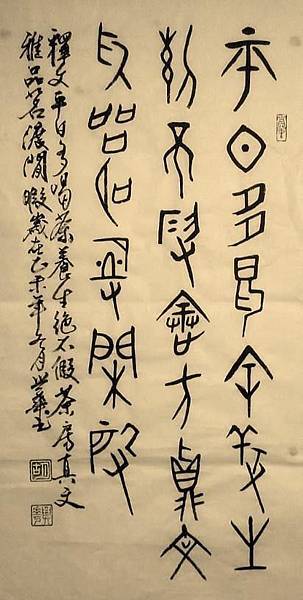 平日多喝茶養生
絕不假茶房真文
雅品茗濃閒暇
釋文平日多喝茶養生絕不假茶房真文
雅品茗濃閒暇歲在乙未年月世華書